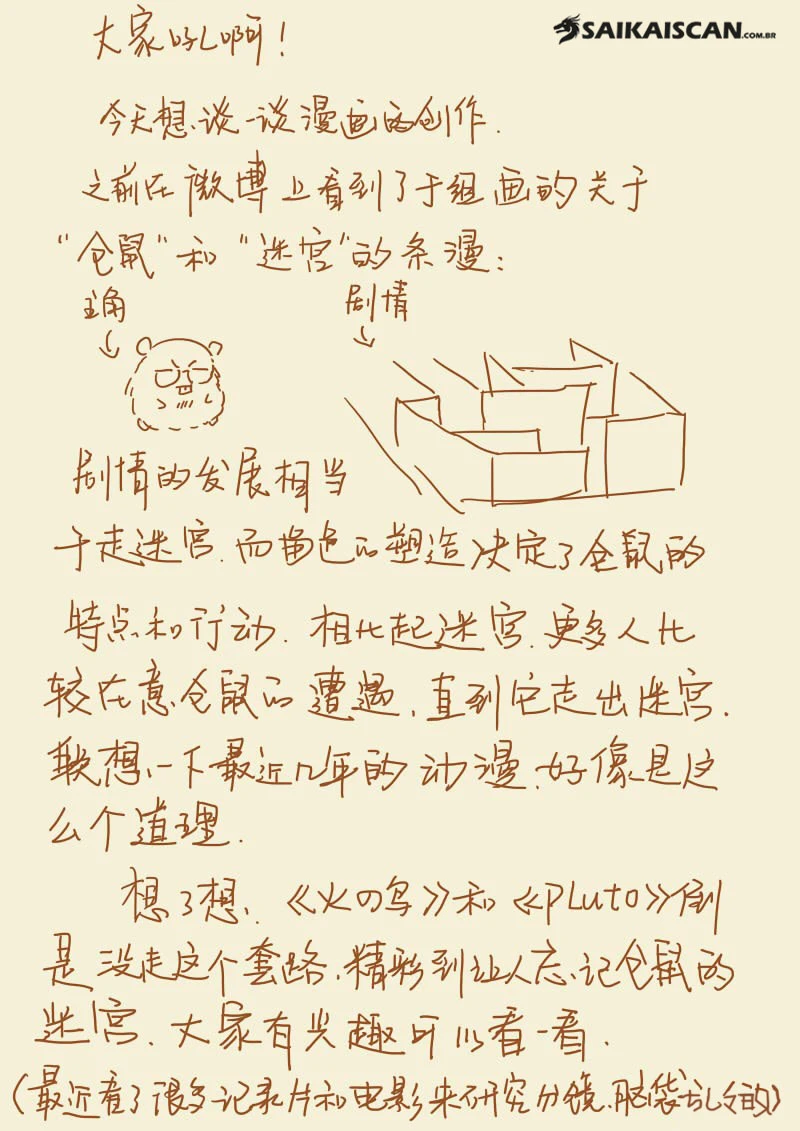 SAIKAISCAN.COM.BR
大家好啊！
今天想谈一谈漫画的创作.
之前在微博上看到了于组画的关于
“仓鼠”和“迷宫”的条漫：
主角
剧情
剧情的发展相当
于走迷宫.而角色的塑造决定了仓鼠的
特点和行动.相比起迷宫.更多人比
较在意仓鼠的遭遇.直到它走出迷宫.
联想一下最近几年的动漫.好像是这
么个道理.
想了想、《火の鸟》和《PLuto》倒
是没走这个套路.精彩到让人忘记仓鼠的
迷宫.大家有兴趣可以看一看.
(最近看了很多记录片和电影来研究分镜.脑袋乱乱的)